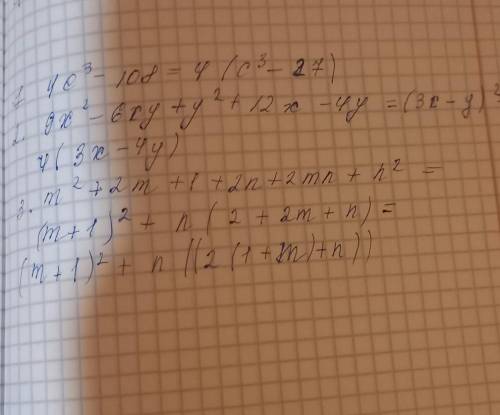 1. 4c³ - 108 = 4 (c³ - 27)
2. 9x² - 6xy + y² + 12x - 4y = (3x - y)²
4(3x - 4y)
3. m² + 2m + 1 + 2n + 2mn + n² =
(m+1)² + n (2 + 2m + n) =
(m+1)² + n ((2 (1 + m) + n))